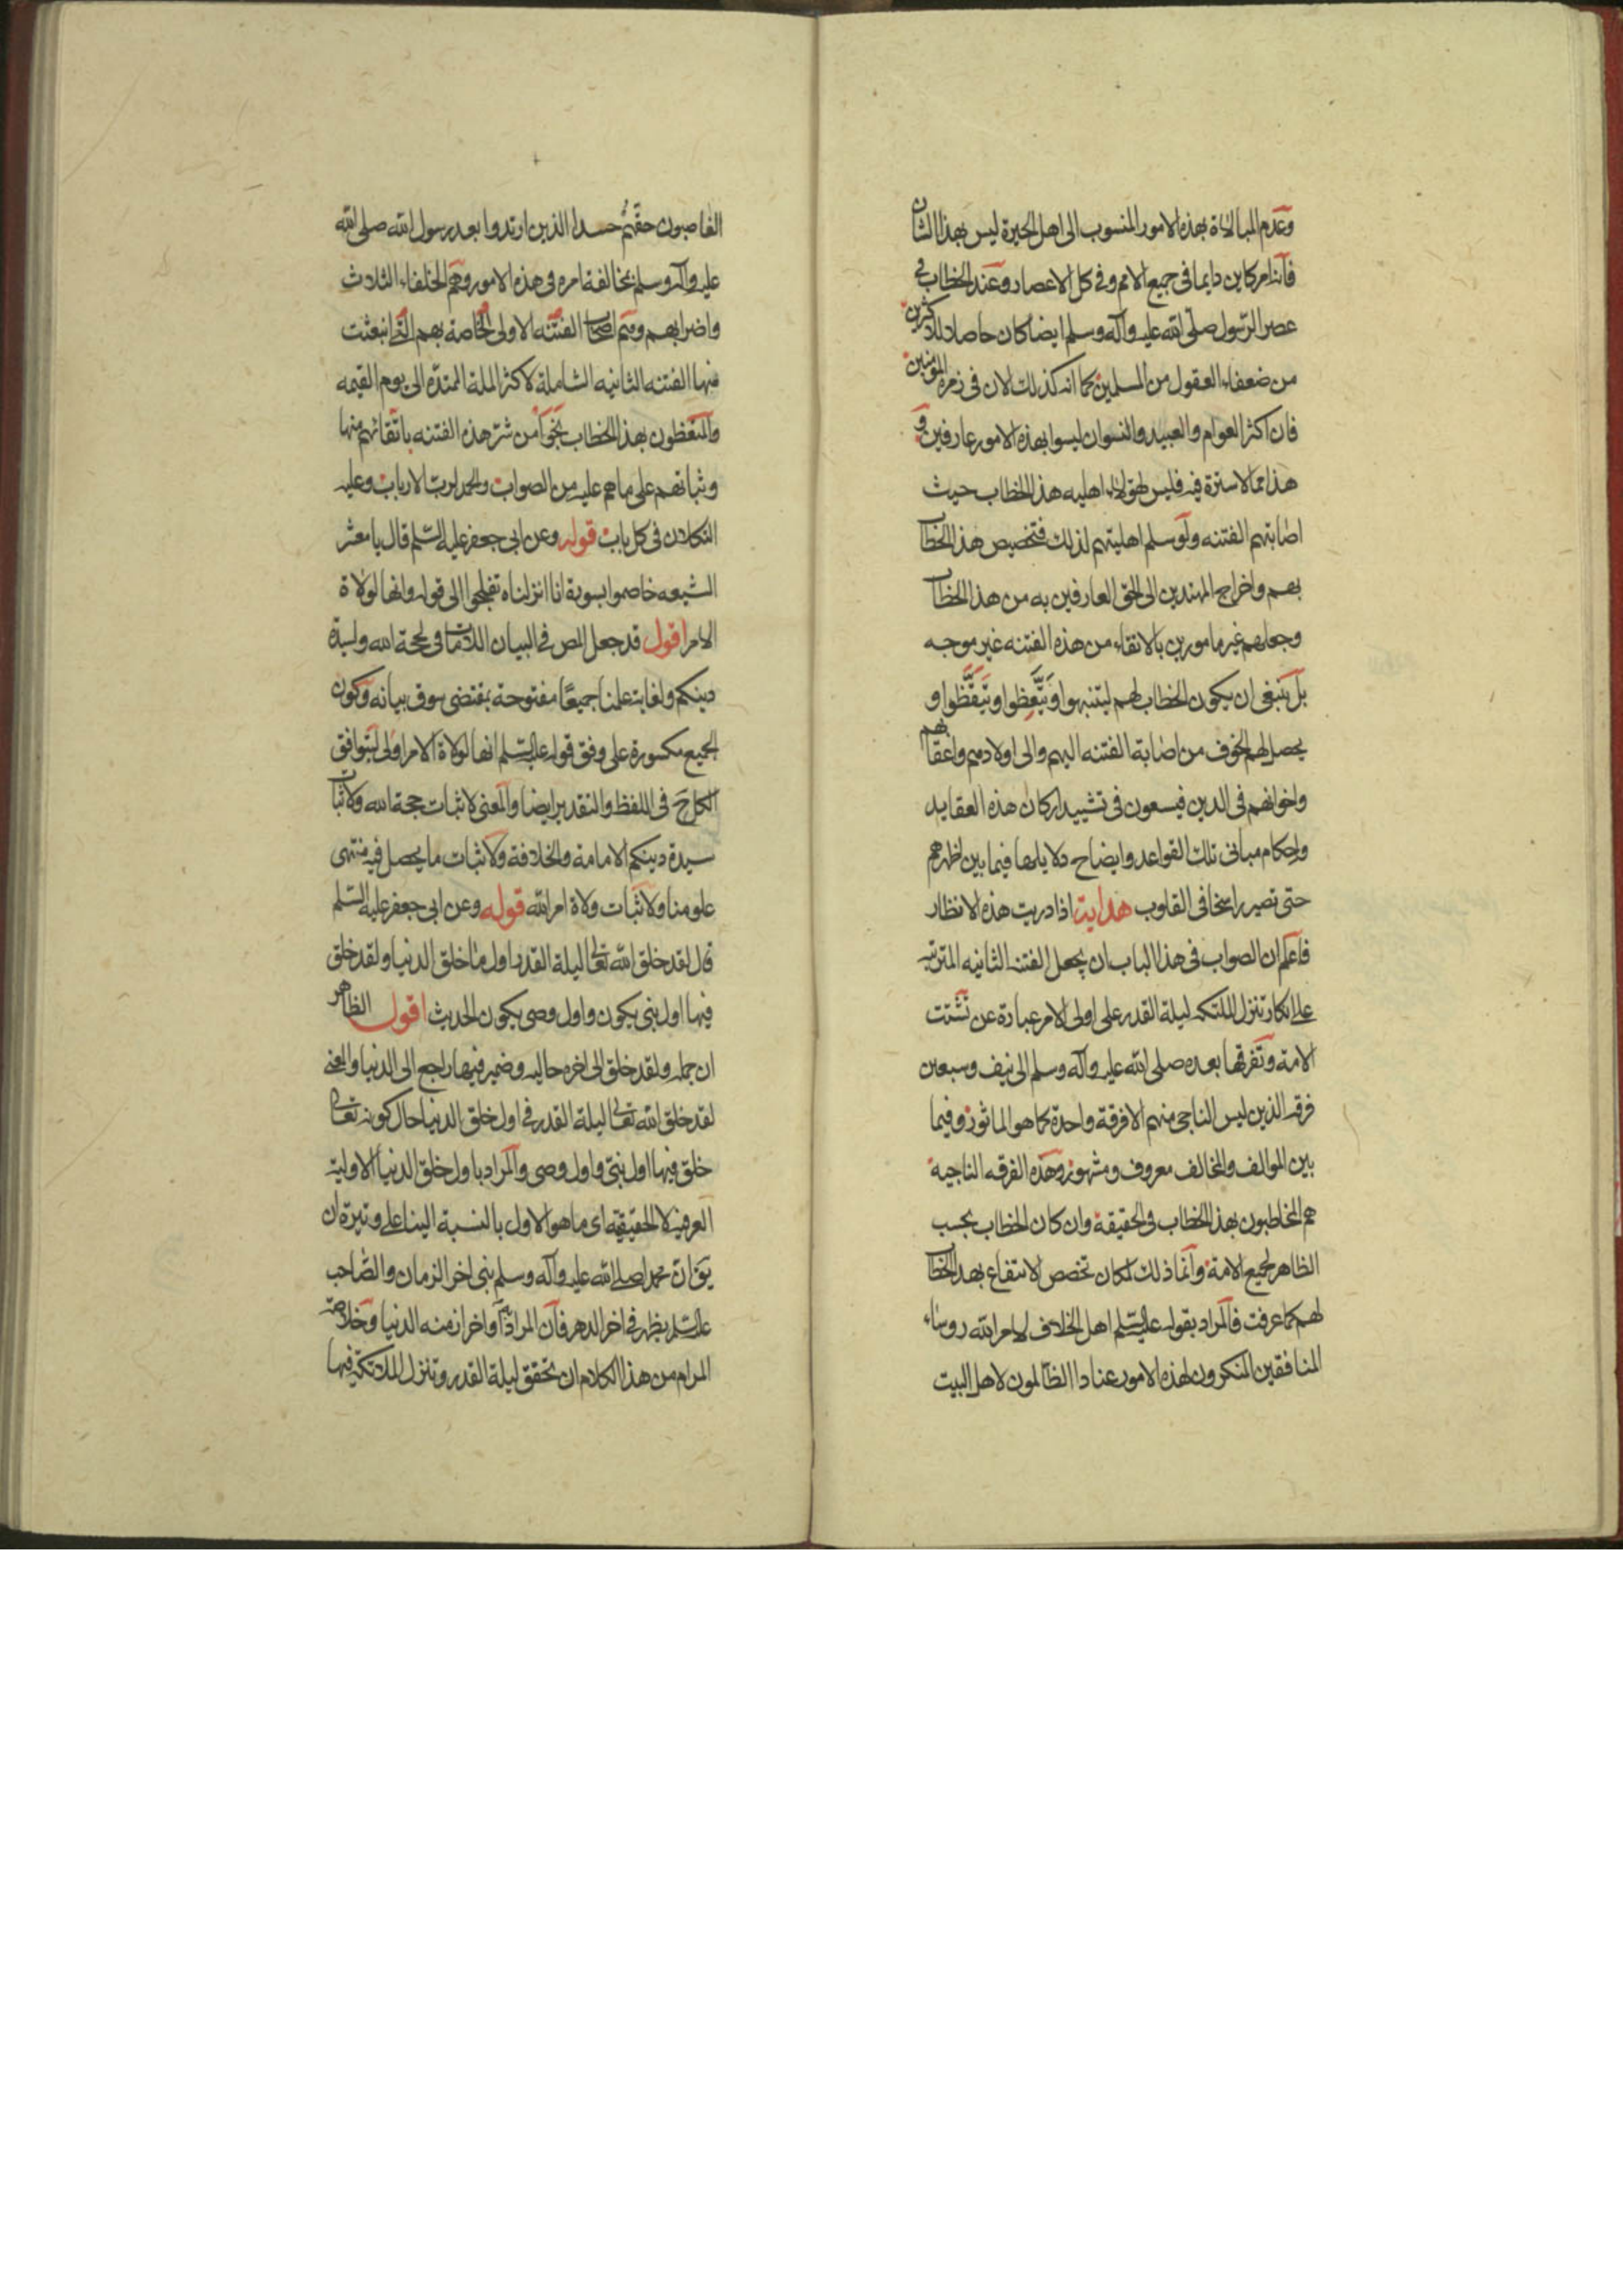 وعدم المبالاة بهذه الامور المنسوب الى اهل الحيرة ليس بهذا الشان
فانه امر كاين دايما فى جميع الامم وفى كل الاعصار وعند الخطاب فى
عصر الرسول صلى الله عليه وآله وسلم ايضا كان حاصلا للاكثرين
من ضعفاء العقول من المسلمين كما انه كذلك الان فى زمرة المؤمنين
فان اكثر العوام والعبيد والنسوان ليسوا بهذه الامور عارفين و
هذا مما لا سترة فيه فليس لهؤلاء اهليه هذا الخطاب حيث
اصابتهم الفتنه ولو سلم اهليتهم لذلك فتخصيص هذا الخطاب
بهم واخراج المهتدين الى الحق العارفين به من هذا الخطاب
وجعلهم غير مامورين بالاتقاء من هذه الفتنه غير موجه
بل ينبغى ان يكون الخطاب لهم ليتنبهوا ويتعظوا ويتيقظوا و
يحصل لهم الخوف من اصابة الفتنه اليهم والى اولادهم واعقابهم
واخوانهم فى الدين فيسعون فى تشييد اركان هذه العقايد
واحكام مبانى تلك القواعد وايضاح دلايلها فيما بين اظهرهم
حتى تصير راسخا فى القلوب هداية اذا دريت هذه الانظار
فاعلم ان الصواب فى هذا الباب ان يجعل الفتنه الثانيه المترتبه
على انكار تنزل الملئكه ليلة القدر على اولى الامر عبارة عن تشتت
الامة وتفرقها بعده صلى الله عليه وآله وسلم الى نيف وسبعين
فرقه الذين ليس الناجى منهم الا فرقة واحدة كما هو الماثور وفيما
بين الموالف والمخالف معروف ومشهور وهذه الفرقه الناجية
هم المخاطبون بهذا الخطاب فى الحقيقة وان كان الخطاب بحسب
الظاهر لجميع الامة وانما ذلك لمكان تخصص الانتفاع بهذا الخطاب
لهم كما عرفت فالمراد بقوله عليه السلم اهل الخلاف لامر الله روساء
المنافقين المنكرون لهذه الامور عنادا الظالمون لاهل البيت
الغاصبون حقهم حسدا الذين ارتدوا بعد رسول الله صلى الله
عليه وآله وسلم بمخالفة امره فى هذه الامور وهم الخلفاء الثلاث
واضرابهم وهم اصحاب الفتنه الاولى الخاصة بهم التى انبعثت
منها الفتنه الثانيه الشاملة لاكثر الملة الممتدة الى يوم القيمه
والمتعظون بهذا الخطاب نجوا من شر هذه الفتنه باتقائهم منها
وثباتهم على ما هم عليه من الصواب والحمد لرب الارباب وعليه
التكلان فى كل باب قوله وعن ابى جعفر عليه السلم قال يا معشر
الشيعه خاصموا بسورة انا انزلناه تفلجوا الى قوله وانها لولاة
الامر اقول قد جعل النص فى البيان اللامات فى لحجة الله ولسيدة
دينكم ولغاية علمنا جميعا مفتوحة بمقتضى سوق بيانه وكون
الجميع مكسورة على وفق قوله عليه السلم انها لولاة الامر اولى لتوافق
الكل ح فى اللفظ والتقدير ايضا والمعنى لاثبات حجة الله ولاثبات
سيدة دينكم الامامة والخلافة ولاثبات ما يحصل فيه منتهى
علومنا ولاثبات ولاة امر الله قوله وعن ابى جعفر عليه السلم
قال لقد خلق الله تعالى ليلة القدر اول ما خلق الدنيا ولقد خلق
فيها اول نبى يكون واول وصى يكون الحديث اقول الظاهر
ان جمله ولقد خلق الى اخره حاليه وضمير فيها راجع الى الدنيا والمعنى
لقد خلق الله تعالى ليلة القدر فى اول خلق الدنيا حال كونه تعالى
خلق فيها اول نبى واول وصى والمراد باول خلق الدنيا الاولية
العرفية لا الحقيقيه اى ما هو الاول بالنسبة الينا على وتيرة ان
يق ان محمدا صلى الله عليه وآله وسلم نبى اخر الزمان والصاحب
عليه السلم يظهر فى اخر الدهر فان المراد به اواخر ازمنه الدنيا وخلاصة
المرام من هذا الكلام ان تحقق ليلة القدر وتنزل الملائكة فيها